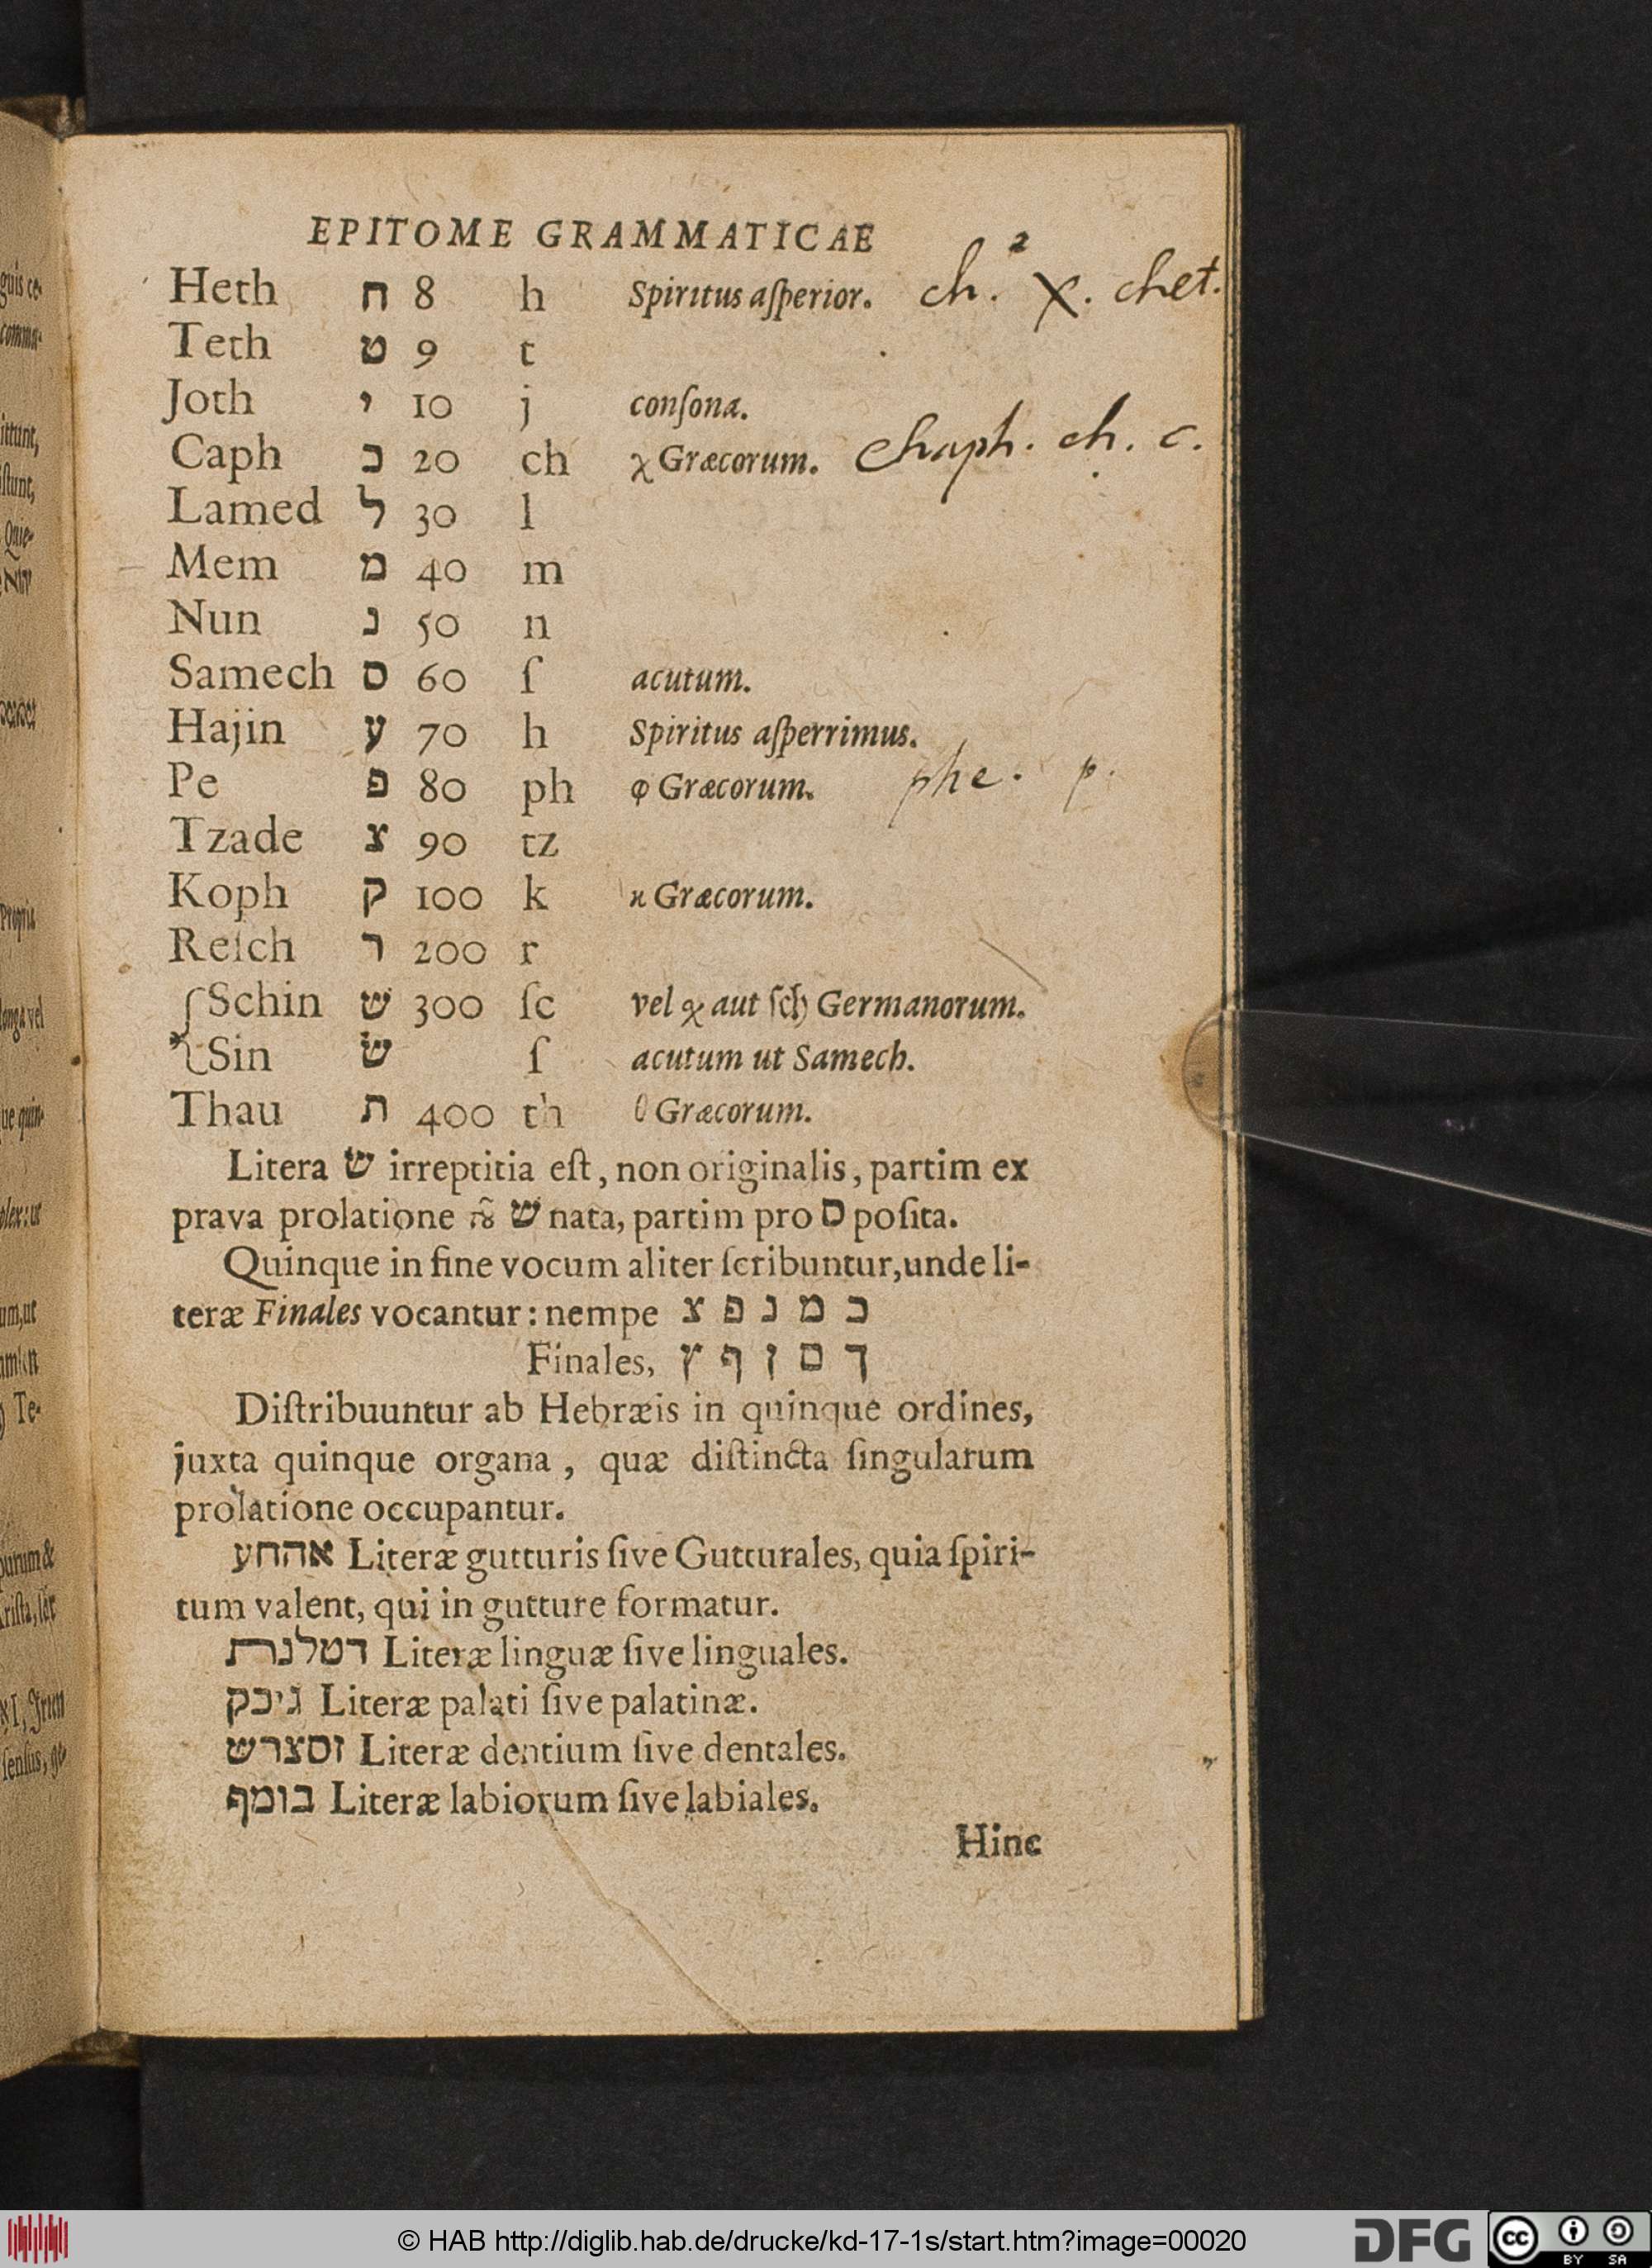 EPITOME GRAMMATICAE
Heth ח 8 h Spiritus aſperior. ch. 2 χ. chet.
Teth ט 9 t
Joth י 10 j conſona.
Caph כ 20 ch χ Græcorum. Chaph. ch. c.
Lamed ל 30 l
Mem מ 40 m
Nun נ 50 n
Samech ס 60 ſ acutum.
Hajin ע 70 h Spiritus aſperrimus.
Pe פ 80 ph φ Græcorum. phe. p.
Tzade צ 90 tz
Koph ק 100 k κ Græcorum.
Reſch ר 200 r
Schin שׁ 300 ſc vel aut ſch Germanorum.
Sin שׂ ſ acutum ut Samech.
Thau ת 400 th θ Græcorum.
Litera שׂ irreptitia eſt, non originalis, partim ex
prava prolatione שׁ nata, partim pro ס poſita.
Quinque in fine vocum aliter ſcribuntur, unde li-
teræ Finales vocantur: nempe כ מ נ פ צ
Finales, ך ם ן ף ץ
Diſtribuuntur ab Hebræis in quinque ordines,
juxta quinque organa, quæ diſtincta ſingularum
prolatione occupantur.
אהחע Literæ gutturis ſive Gutturales, quia ſpiri-
tum valent, qui in gutture formatur.
דטלנרת Literæ linguæ ſive linguales.
גיכק Literæ palati ſive palatinæ.
זסצרש Literæ dentium ſive dentales.
בומף Literæ labiorum ſive labiales.
Hinc
© HAB http://diglib.hab.de/drucke/kd-17-1s/start.htm?image=00020
DFG
cc BY SA